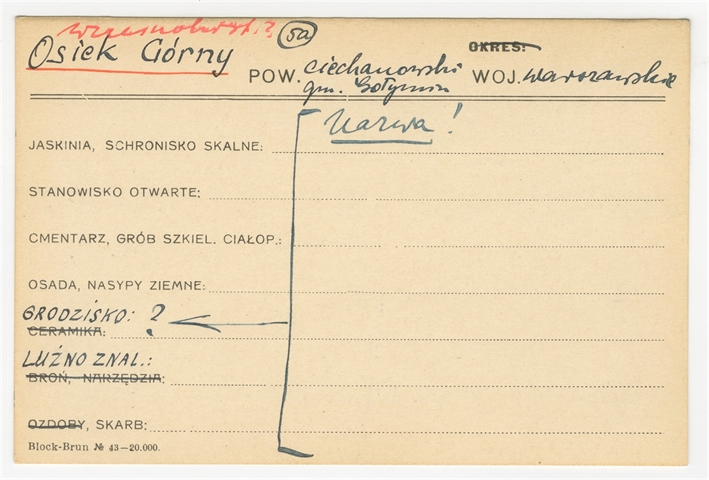 wczesnośred.?
Osiek Górny 5a OKRES:
POW. ciechanowski WOJ. warszawskie
gm. Gołymin
Nazwa!
JASKINIA, SCHRONISKO SKALNE:
STANOWISKO OTWARTE:
CMENTARZ, GRÓB SZKIEL. CIAŁOP.:
OSADA, NASYPY ZIEMNE:
GRODZISKO: ?
CERAMIKA:
LUŹNO ZNAL.:
BROŃ, NARZĘDZIA:
OZDOBY, SKARB:
Block-Brun № 43—20.000.